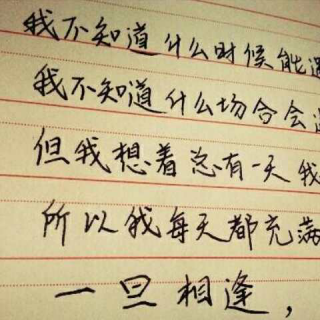 我不知道什么时候能遇
我不知道什么场合会
但我想着总有一天我
所以我每天都充满
一旦相逢，